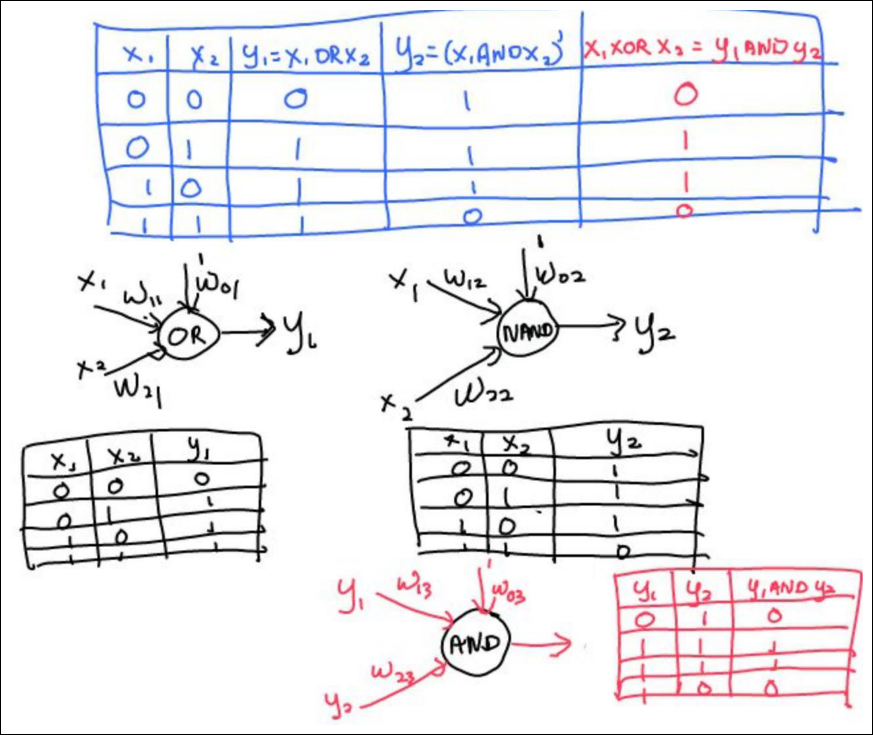 x₁ x₂ y₁=x₁ OR x₂ y₂=(x₁ AND x₂)' x₁ XOR x₂ = y₁ AND y₂
0 0 0 1 0
0 1 1 1 1
1 0 1 1 1
1 1 1 0 0
x₁ w₁₁ 1 w₀₁
OR y₁
x₂ w₂₁
x₁ w₁₂ 1 w₀₂
NAND y₂
x₂ w₂₂
x₁ x₂ y₁
0 0 0
0 1 1
1 0 1
1 1 1
x₁ x₂ y₂
0 0 1
0 1 1
1 0 1
1 1 0
y₁ w₁₃ 1 w₀₃
AND
y₂ w₂₃
y₁ y₂ y₁ AND y₂
0 1 0
1 1 1
1 1 1
1 0 0